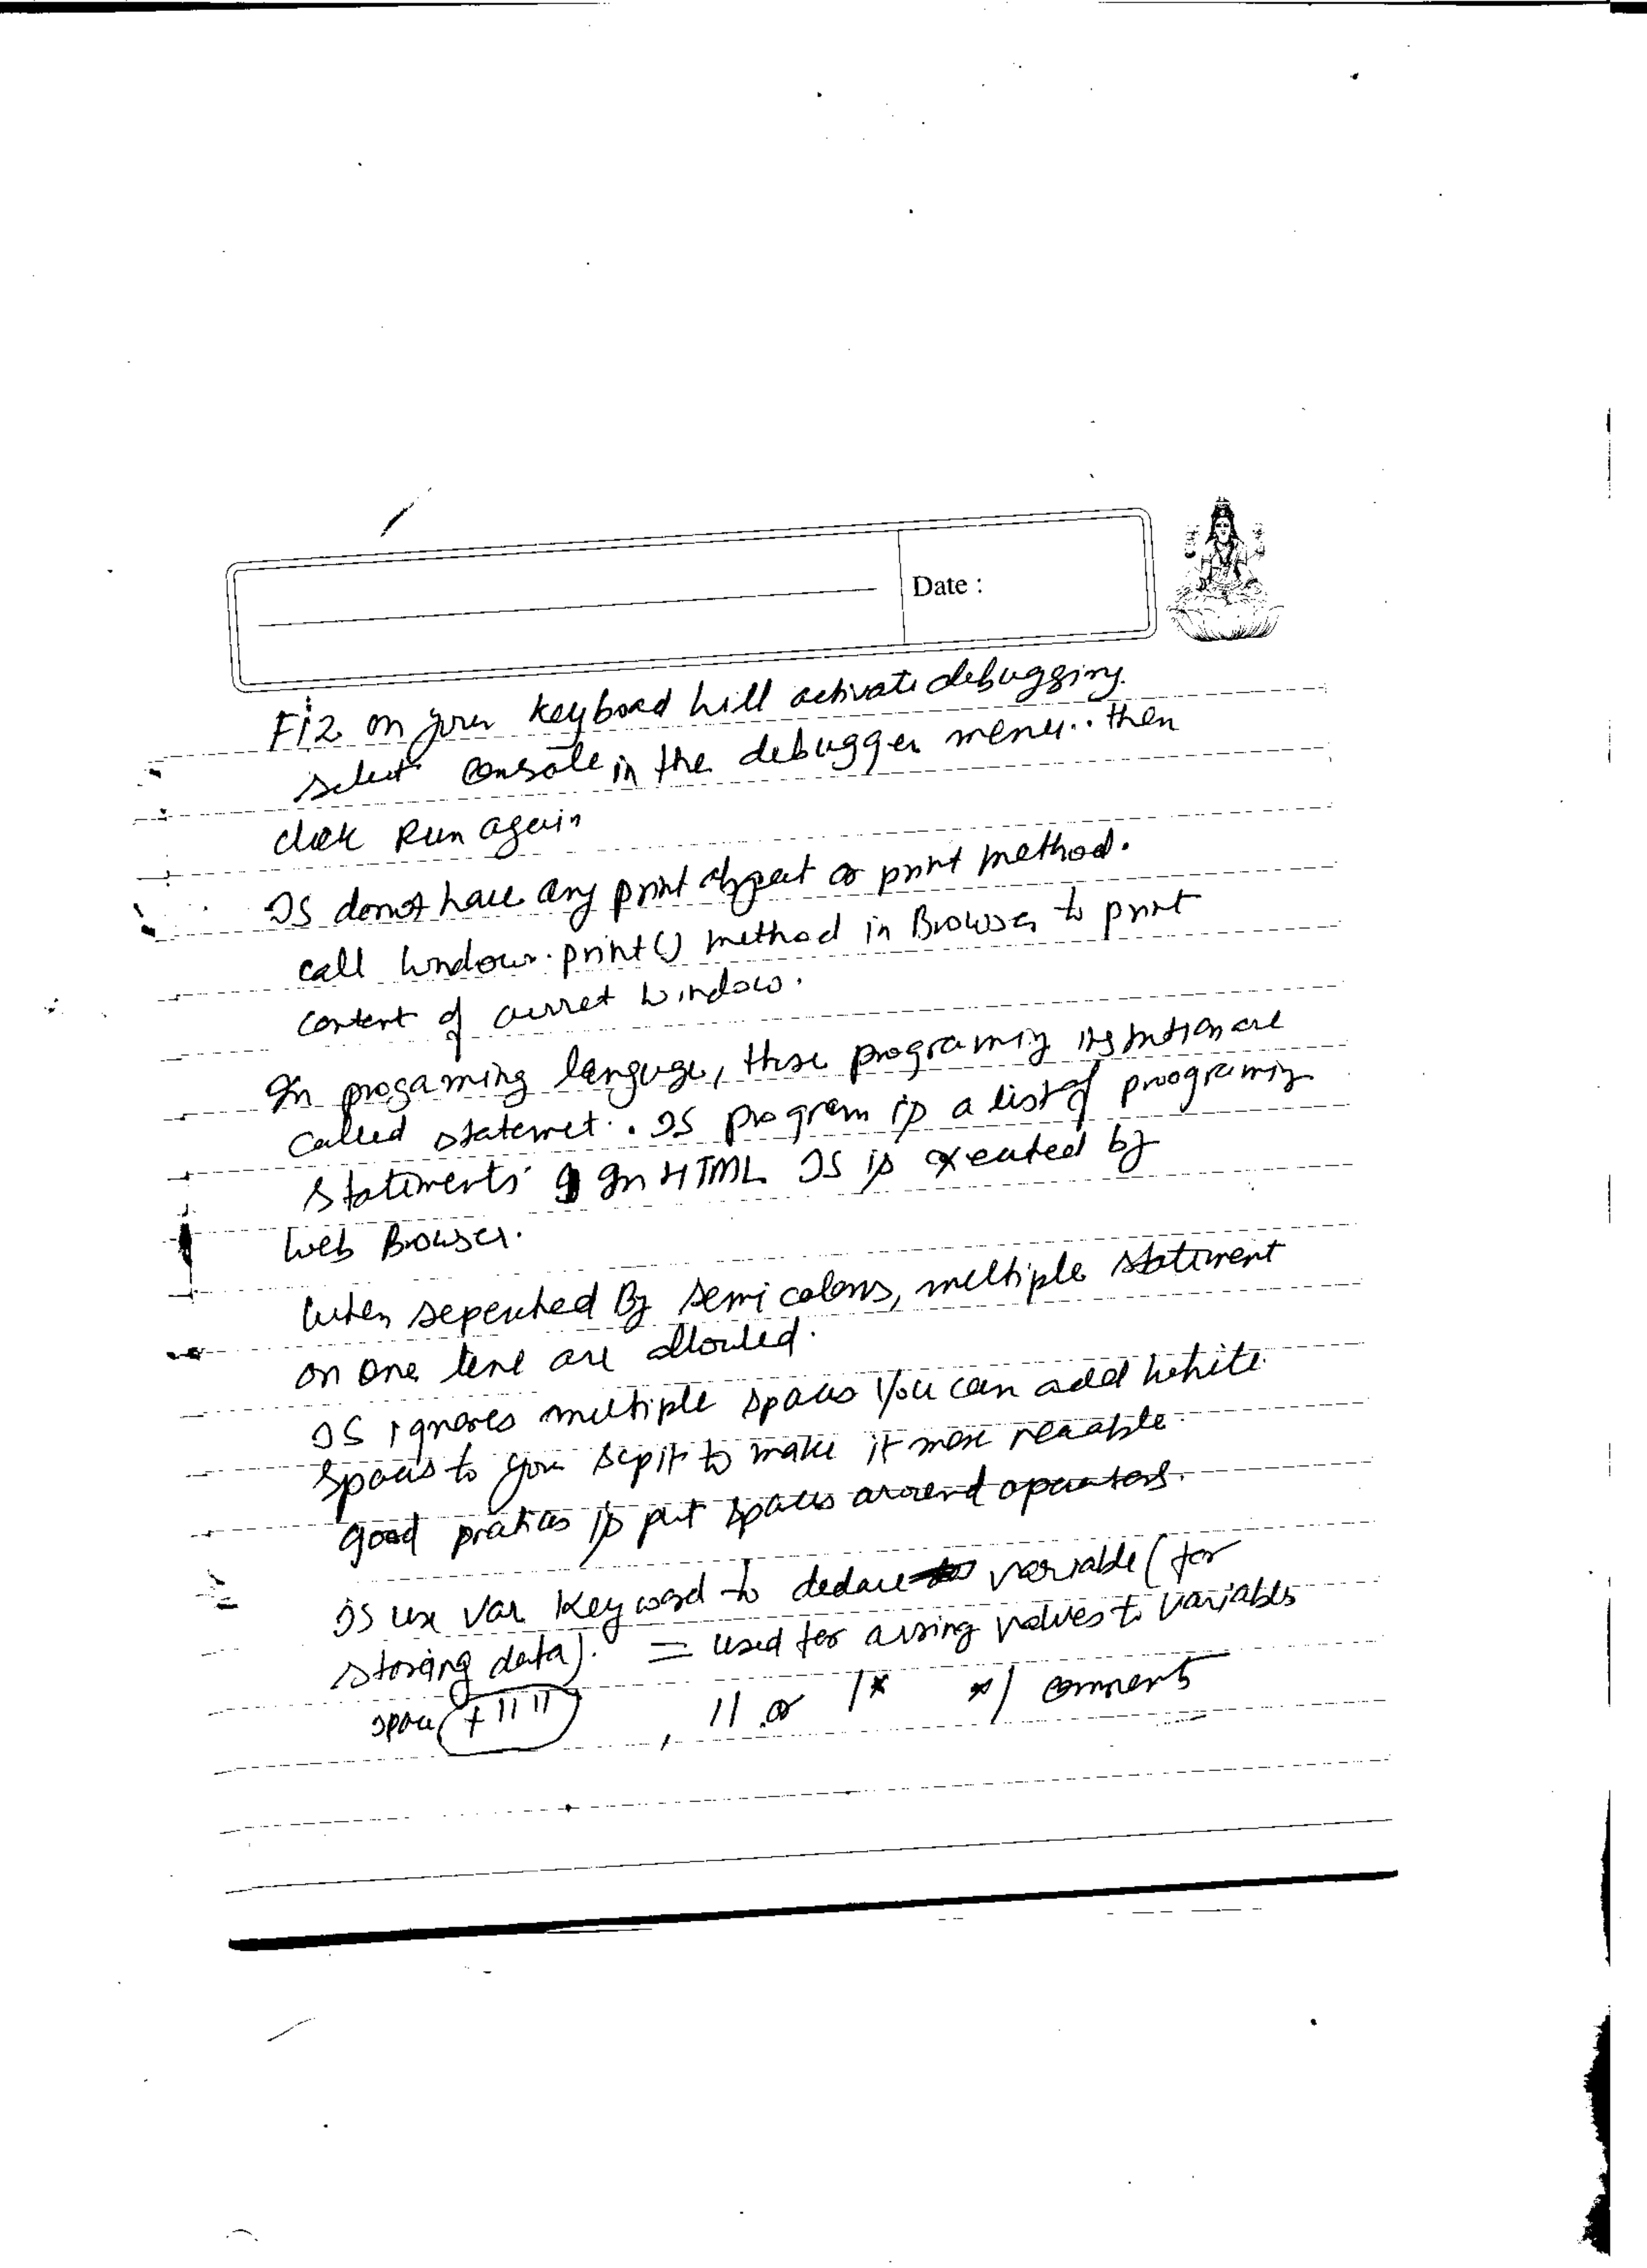 Date :
F12 on your keyboard will activate debugging.
select console in the debugger menu.. then
click Run again
JS donot have any print object or print method.
call window.print() method in Browser to print
content of curret window.
In progaming languge, these programing instrution are
called statemet. . JS program is a list of proogramig
statements In HTML JS is exeuted by
Web Browser.
When seperated By semi colons, multiple statement
on one line are allowed.
JS ignores multiple spaces You can add white
spaces to your script to make it more reaable
good pratices is put spaces around operators.
JS use var keyword to declare variable (for
storing data). = used for assing values to variables
space + " " , // or /* */ comments